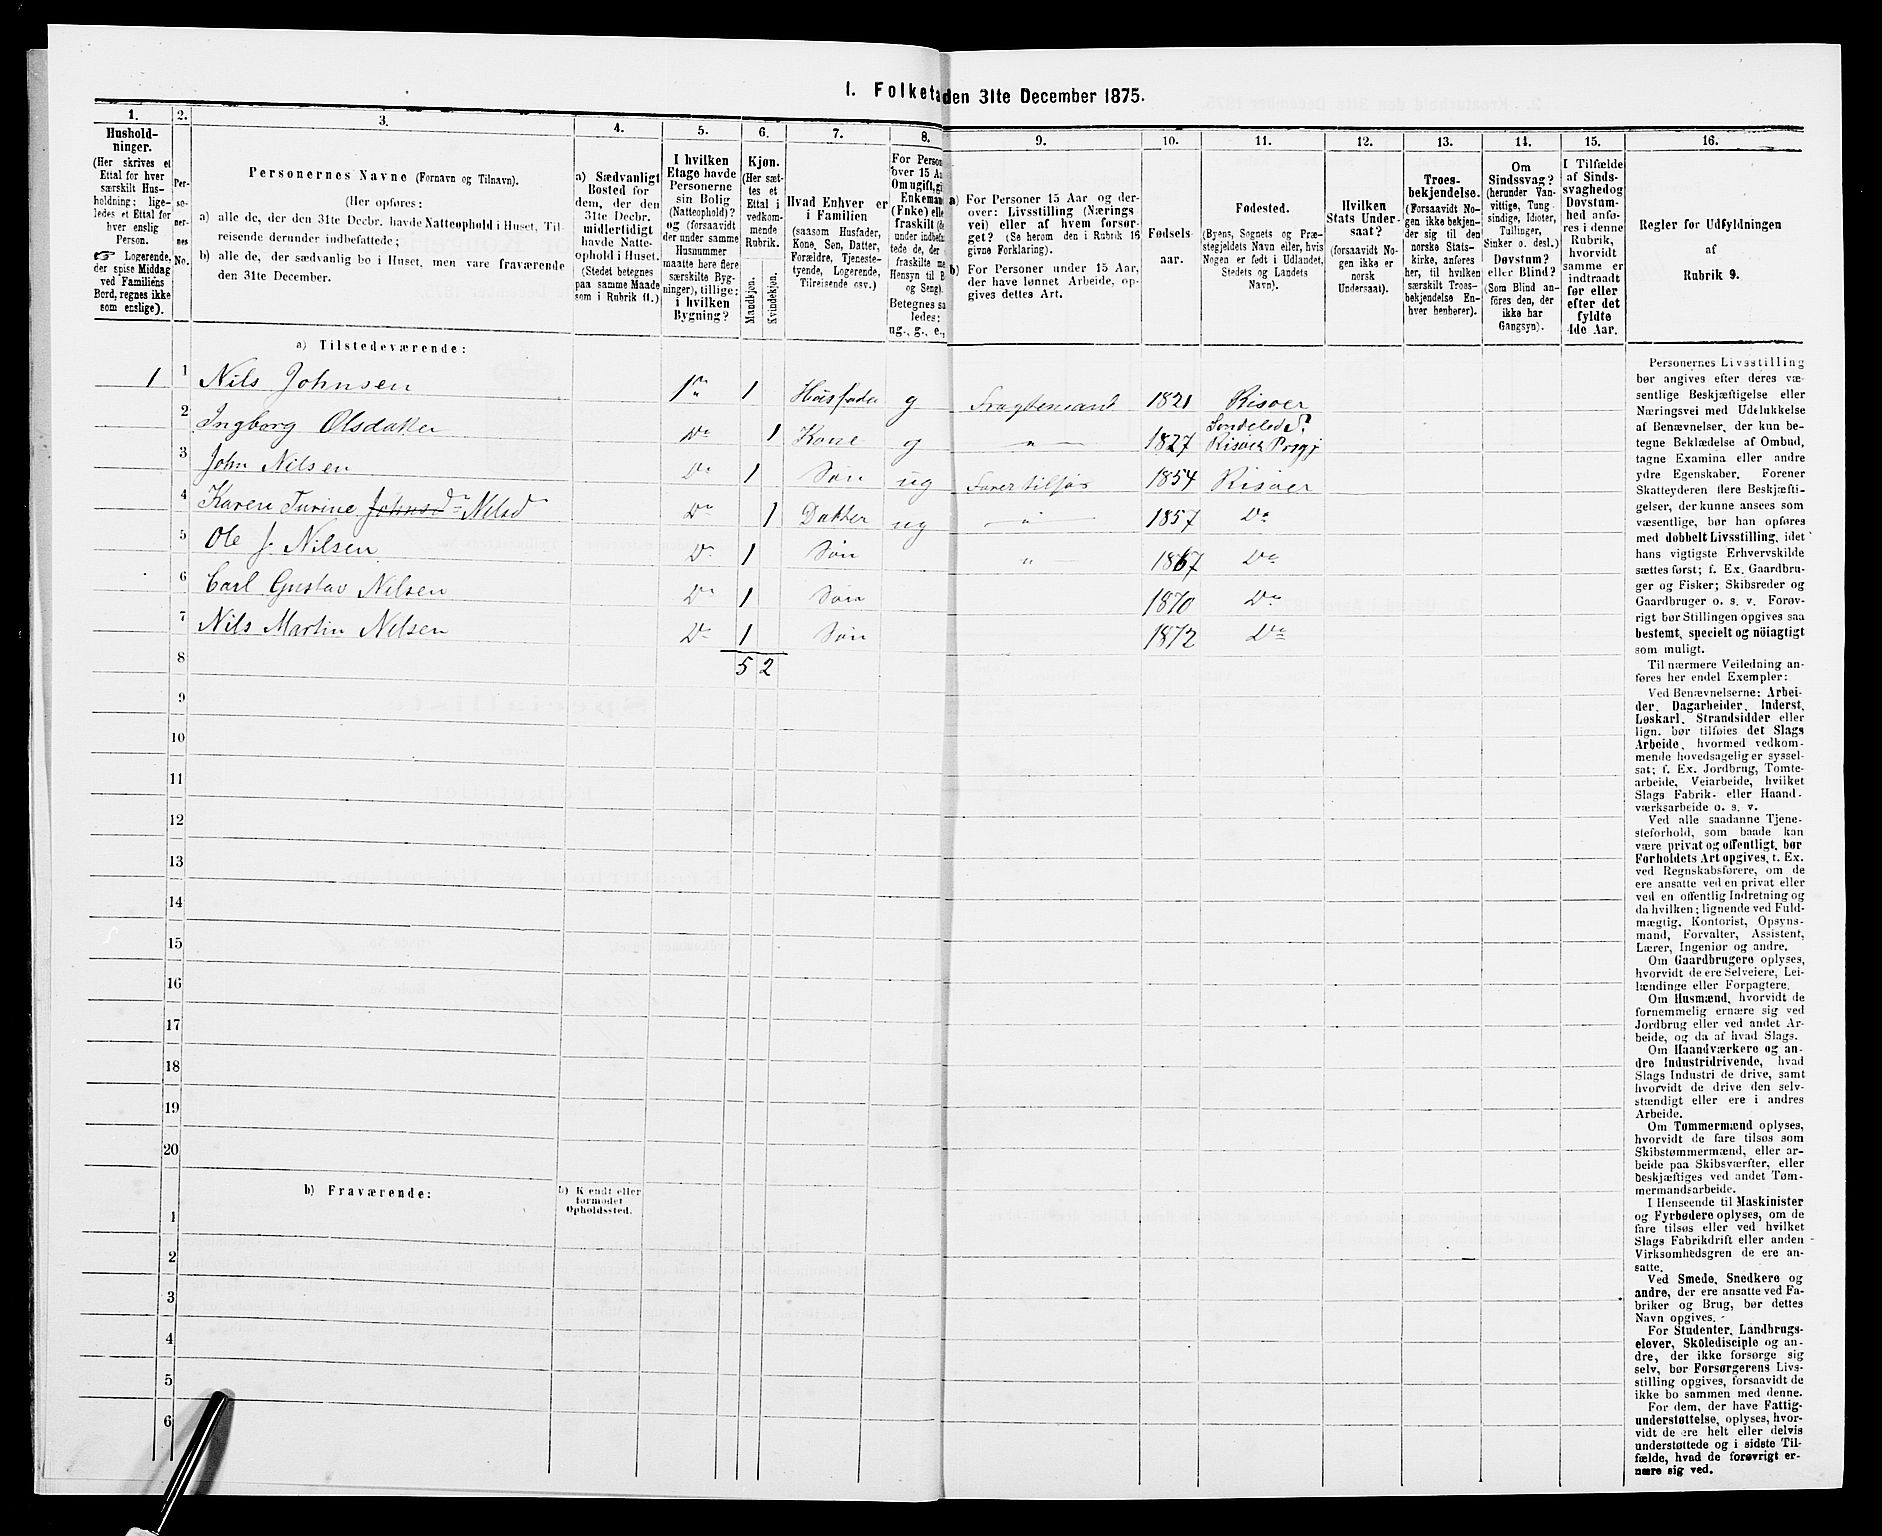 1. Folketæ
den 31te December 1875.
1.
Hushold-
ninger.
(Her skrives et
Ettal for hver
særskilt Hus-
holdning; lige-
ledes et Ettal for
hver enslig
Person.
☞ Logerende,
der spise Middag
ved Familiens
Bord, regnes ikke
som enslige).
2.
Per-
so-
ner-
nes
No.
3.
Personernes Navne (Fornavn og Tilnavn).
(Her opføres:
a) alle de, der den 31te Decbr. havde Natteophold i Huset, Til-
reisende derunder indbefattede;
b) alle de, der sædvanlig bo i Huset, men vare fraværende
den 31te December.
4.
a) Sædvanligt
Bosted for
dem, der den
31te Decbr.
midlertidigt
havde Natte-
ophold i Huset.
(Stedet betegnes
paa samme Maade
som i Rubrik 11.)
5.
I hvilken
Etage havde
Personerne
sin Bolig
(Natteophold)?
og (forsaavidt
der under samme
Husnummer
maatte høre flere
særskilte Byg-
ninger), tillige:
i hvilken
Bygning?
6.
Kjøn.
(Her sæt-
tes et
Ettal i
vedkom-
mende
Rubrik.
Mandkjøn.
Kvindekjøn.
7.
Hvad Enhver er
i Familien
(saasom Husfader,
Kone, Søn, Datter,
Forældre, Tjeneste-
tyende, Logerende,
Tilreisende osv.)
8.
For Person
over 15 Aa
Om ugift, gi
Enkemand
(Enke) elle
fraskilt (de
under indbef
tede de, der
fraskilte me
Hensyn til B
og Seng).
Betegnes sa
ledes:
ug., g., e.,
9.
a) For Personer 15 Aar og der-
over: Livsstilling (Nærings-
vei) eller af hvem forsør-
get? (Se herom den i Rubrik 16
givne Forklaring).
b) For Personer under 15 Aar,
der have lønnet Arbeide, op-
gives dettes Art.
10.
Fødsels-
aar.
11.
Fødested.
(Byens, Sognets og Præ-
stegjeldets Navn eller, hvis
Nogen er født i Udlandet,
Stedets og Landets
Navn).
12.
Hvilken
Stats Under-
saat?
(forsaavidt No-
gen ikke er
norsk
Undersaat).
13.
Troes-
bekjendelse.
(Forsaavidt No-
gen ikke bekjen-
der sig til den
norske Stats-
kirke, anføres
her, til hvilken
særskilt Troes-
bekjendelse En-
hver henhører).
14.
Om
Sindssvag?
(herunder Van-
vittige, Tung-
sindige, Idioter,
Tullinger,
Sinker o. desl.)
Døvstum?
eller Blind?
(Som Blind an-
føres den, der
ikke har
Gangsyn).
15.
I Tilfælde
af Sinds-
svaghed og
Døvstum-
hed anfø-
res i denne
Rubrik,
hvorvidt
samme er
indtraadt
før eller
efter det
fyldte
4de Aar.
16.
Regler for Udfyldningen
af
Rubrik 9.
a) Tilstedeværende:
1 1 Nils Johnsen 1ste 1 Husfader g Fragtemand 1821 Risøer
2 Ingborg Olsdatter Do 1 Kone g " 1827 Søndeled S. Risøer Prgj
3 John Nilsen Do 1 Søn ug Farer tilsjøs 1854 Risøer
4 Karen Turine Johnsd Nelsd Do 1 Datter ug " 1857 Do
5 Ole J. Nilsen Do 1 Søn " 1867 Do
6 Carl Gustav Nelsen Do 1 Søn 1870 Do
7 Nils Martin Nelsen Do 1 Søn 1872 Do
8 5 2
9
10
11
12
13
14
15
16
17
18
19
20
b) Fraværende:
b) Kjendt eller
formodet
Opholdssted.
1
2
3
4
5
6
Personernes Livsstilling
bør angives efter deres væ-
sentlige Beskjæftigelse eller
Næringsvei med Udelukkelse
af Benævnelser, der kun be-
tegne Beklædelse af Ombud,
tagne Examina eller andre
ydre Egenskaber. Forener
Skatteyderen flere Beskjæfti-
gelser, der kunne ansees som
væsentlige, bør han opføres
med dobbelt Livsstilling, idet
hans vigtigste Erhvervskilde
sættes først; f. Ex. Gaardbru-
ger og Fisker; Skibsreder og
Gaardbruger o. s. v. Forøv-
rigt bør Stillingen opgives saa
bestemt, specielt og nöiagtigt
som muligt.
Til nærmere Veiledning an-
føres her endel Exempler:
Ved Benævnelserne: Arbei-
der, Dagarbeider, Inderst,
Løskarl, Strandsidder eller
lign. bør tilføies det Slags
Arbeide, hvormed vedkom-
mende hovedsagelig er syssel-
sat; f. Ex. Jordbrug, Tomte-
arbeide, Veiarbeide, hvilket
Slags Fabrik- eller Haand-
værksarbeide o. s. v.
Ved alle saadanne Tjene-
steforhold, som baade kan
være privat og offentligt, bør
Forholdets Art opgives, t. Ex.
ved Regnskabsførere, om de
ere ansatte ved en privat eller
ved en offentlig Indretning og
da hvilken; lignende ved Fuld-
mægtig, Kontorist, Opsyns-
mand, Forvalter, Assistent,
Lærer, Ingeniør og andre.
Om Gaardbrugere oplyses,
hvorvidt de ere Selveiere, Lei-
lændinge eller Forpagtere.
Om Husmænd, hvorvidt de
fornemmelig ernære sig ved
Jordbrug eller ved andet Ar-
beide, og da af hvad Slags.
Om Haandværkere og an-
dre Industridrivende, hvad
Slags Industri de drive, samt
hvorvidt de drive den selv-
stændigt eller ere i andres
Arbeide.
Om Tømmermænd oplyses,
hvorvidt de fare tilsøs som
Skibstømmermænd, eller ar-
beide paa Skibsværfter, eller
beskjæftiges ved andet Tøm-
mermandsarbeide.
I Henseende til Maskinister
og Fyrbødere oplyses, om de
fare tilsøs eller ved hvilket
Slags Fabrikdrift eller anden
Virksomhedsgren de ere an-
satte.
Ved Smede, Snedkere og
andre, der ere ansatte ved Fa-
briker og Brug, bør dettes
Navn opgives.
For Studenter, Landbrugs-
elever, Skoledisciple og an-
dre, der ikke forsørge sig
selv, bør Forsørgerens Livs-
stilling opgives, forsaavidt de
ikke bo sammen med denne.
For dem, der have Fattig-
understøttelse, oplyses, hvor-
vidt de ere helt eller delvis
understøttede og i sidste Til-
fælde, hvad de forøvrigt er-
nære sig ved.